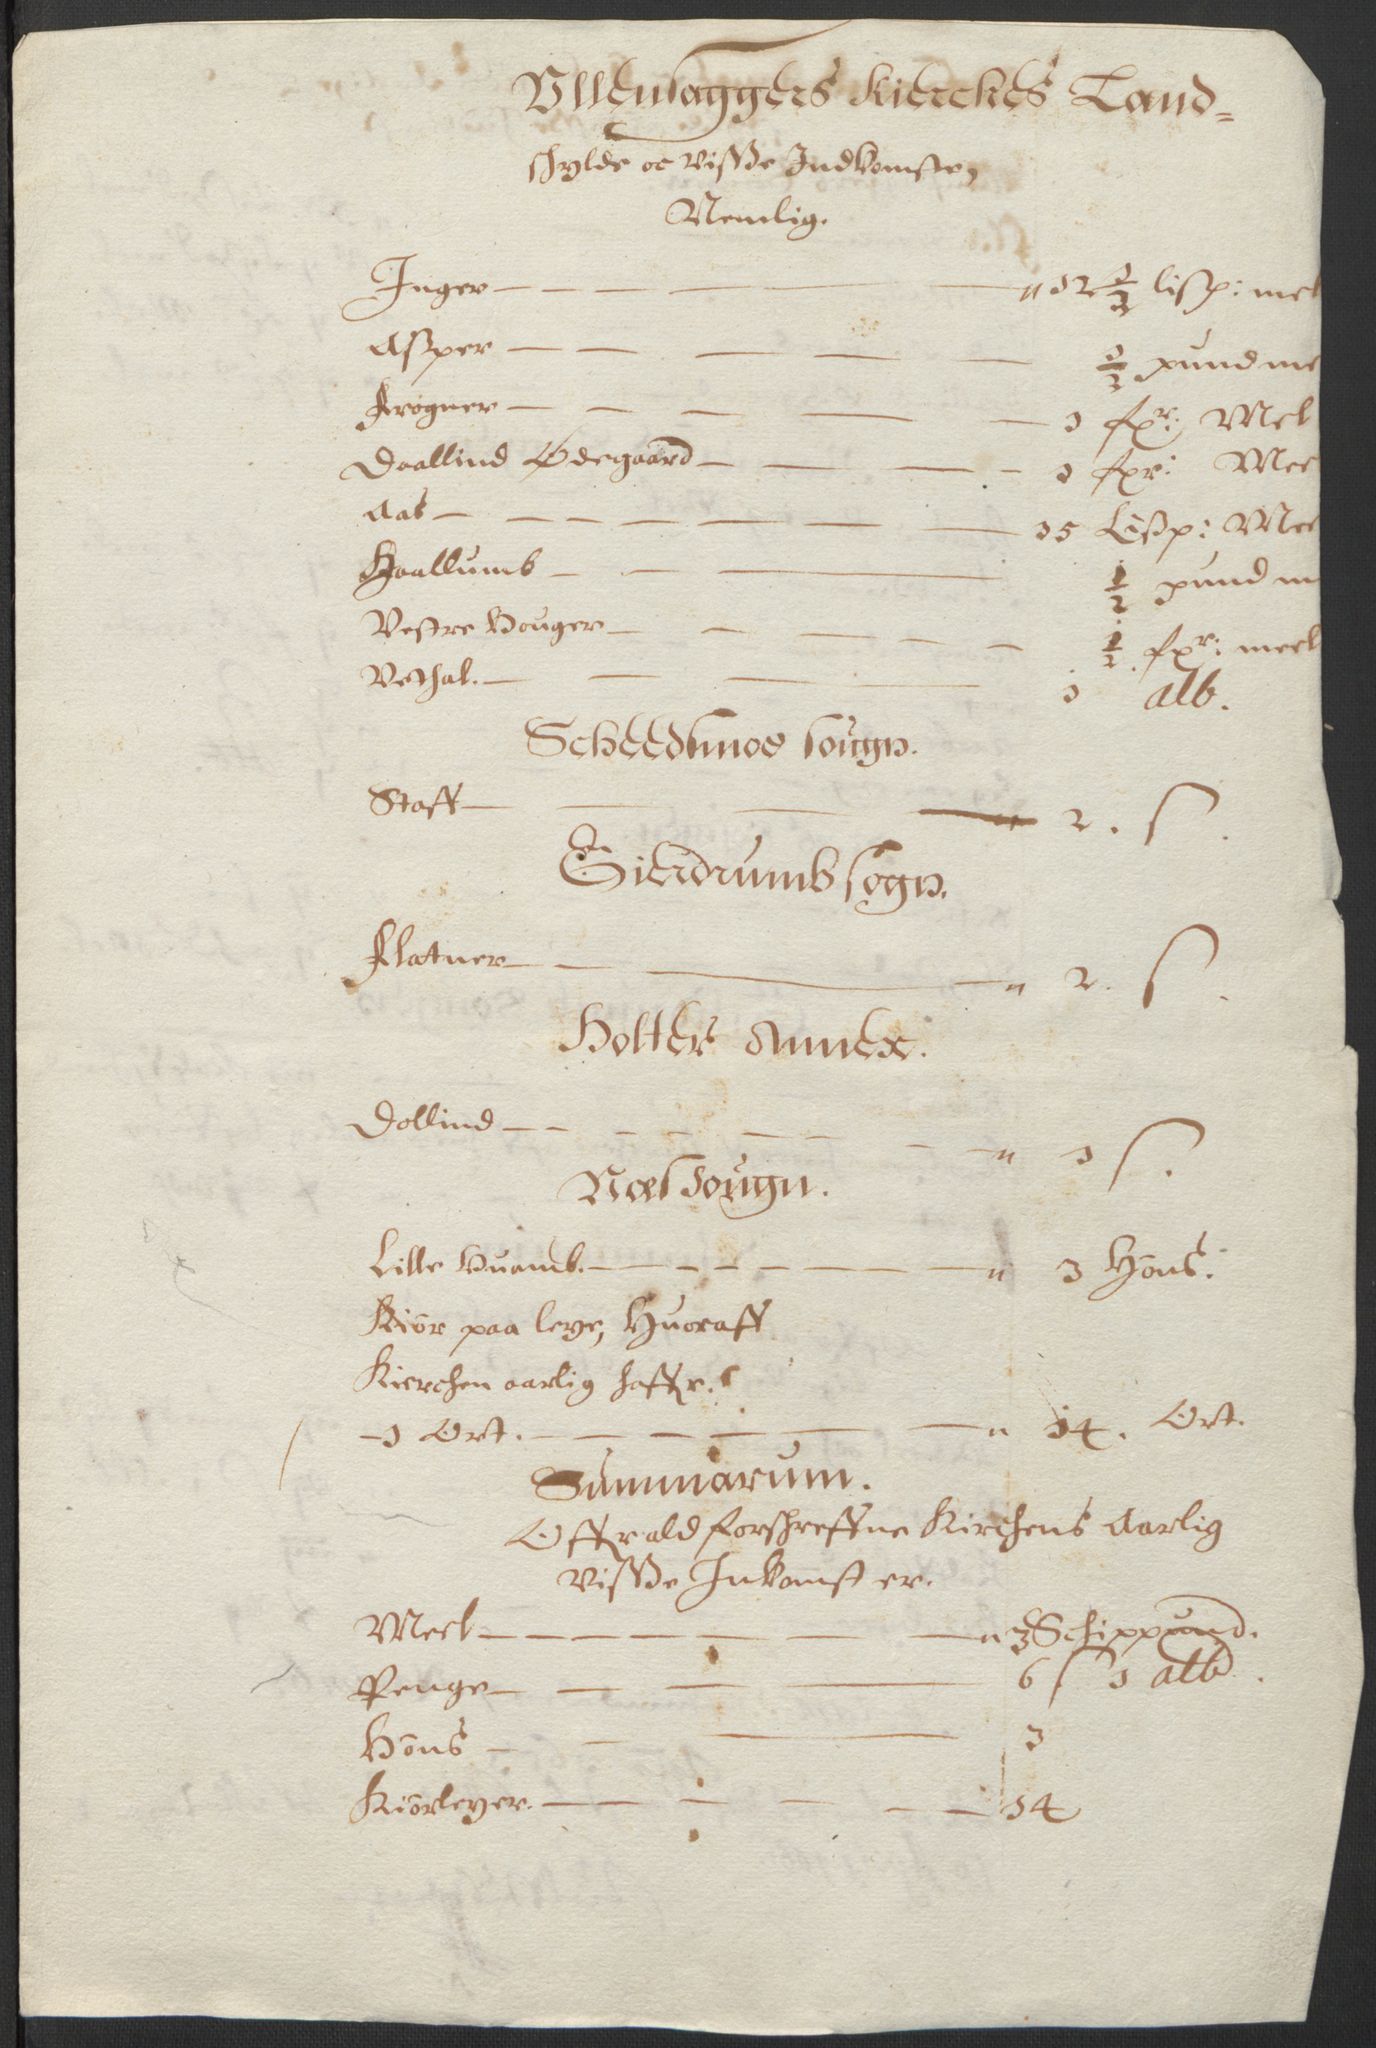 Ullensaggers Kierckes Land=
schylde oc visse Indkomste,
Nemlig.
Inger — " 12 1/2 lisp: mel
Asper — 1/2 pund me
Frogner — 1 fxr: Mel
Daallind Ødegaard — 1 fxr: Mee
Aas — 15 Lisp: Mee
Haallumb — 1/2 pund m
Vestre Houger — 1/2 fxr: meel
Vethal. — 1 alb.
Scheedsmoe sougn.
Staff — " 2. s.
Gierdrumb sogn.
Flatner — " 2. s.
Holters Annex.
Dollind — " 1 s.
Næs Sougn.
Lille Huamb. — " 3 Höns.
Kiör paa leye, Huoraff
Kierchen aarlig haffr.
1 Ort. — " 14. Ort.
Summarum.
Offr ald forschreffne Kirchens Aarlig
visse Inkomster.
Meel — " 3 Schippund.
Penge — 6 s 1 alb.
Höns — 3
Kiörleyer. — 14